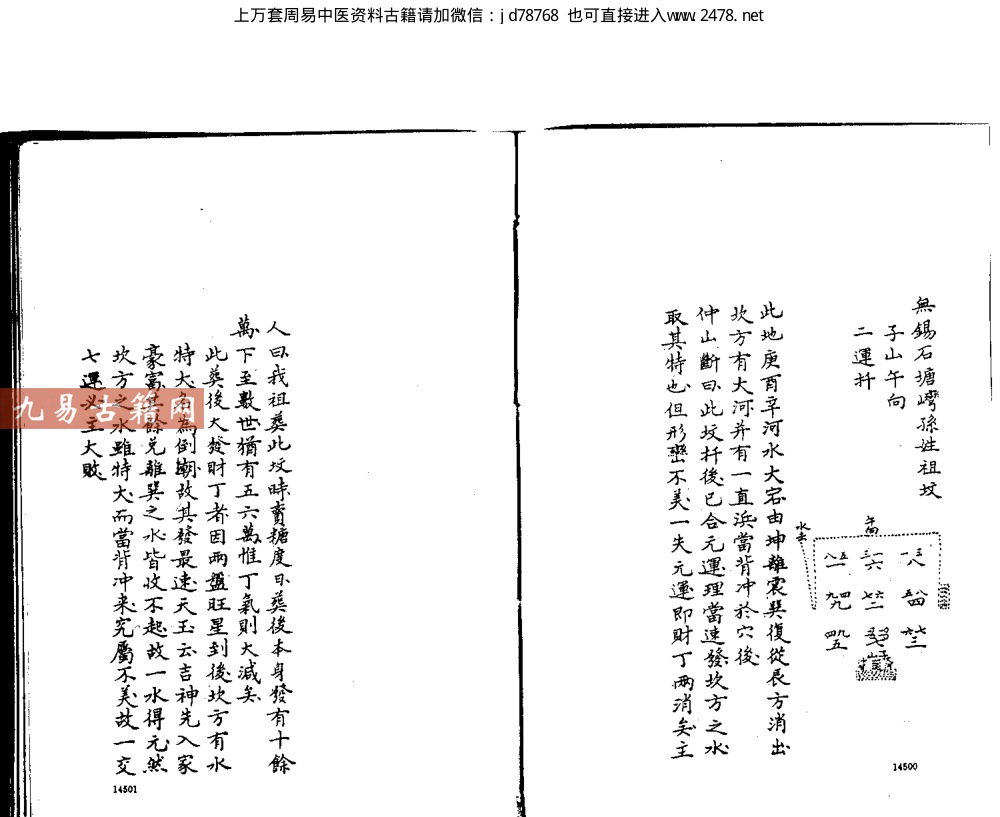 上万套周易中医资料古籍请加微信：jd78768 也可直接进入www.2478.net
無錫石塘灣孫姓祖坟
子山午向
二運扦
水去
三八
一六
五一
此地庚酉辛河水大宕由坤離震巽復從艮方消出
坎方有大河并有一直浜當背冲於穴後
仲山斷曰此坟扦後已合元運理當速發坎方之水
取其特也但形巒不美一失元運即財丁兩消矣主
14500
人曰我祖葬此坟時賣糖度日葬後本身發有十餘
萬下至數世猶有五六萬惟丁氣則大減矣
此葬後大發財丁者因兩盤旺星到後坎方有水
特大名為倒潮故其發最速天玉云吉神先入家
豪富其餘兌離巽之水皆收不起故一水得元然
坎方之水雖特大而當背冲来究屬不美故一交
七運必主大敗
14501
九易古籍网